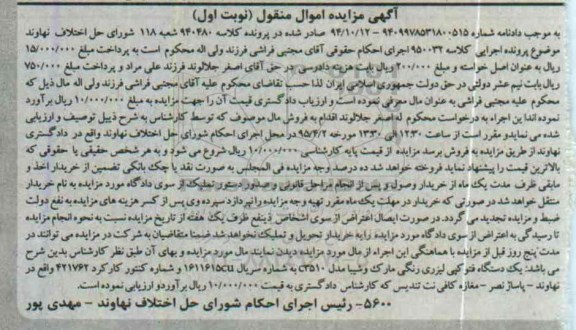 آگهی مزایده اموال منقول (نوبت اول)
به موجب دادنامه شماره ۹۴۰۹۹۷۸۵۳۱۸۰۰۵۱۵ – ۹۴/۱۰/۱۲ صادر شده در پرونده کلاسه ۹۴۰۴۸۰ شعبه ۱۱۸ شورای حل اختلاف نهاوند
موضوع پرونده اجرایی کلاسه ۹۵۰۰۳۲ اجرای احکام حقوقی آقای مجتبی فراشی فرزند ولی اله محکوم است به پرداخت مبلغ ۱۵/۰۰۰/۰۰۰
ریال به عنوان اصل خواسته و مبلغ ۲۰۰/۰۰۰ ریال بابت هزینه دادرسی در حق آقای اصغر جلالوند فرزند علی مراد و پرداخت مبلغ ۷۵۰/۰۰۰
ریال بابت نیم عشر دولتی در حق دولت جمهوری اسلامی ایران لذا حسب تقاضای محکوم علیه آقای مجتبی فراشی فرزند ولی اله مال ذیل که
محکوم علیه مجتبی فراشی به عنوان مال معرفی نموده است و ارزیاب دادگستری قیمت آن را جهت مزایده به مبلغ ۱۰/۰۰۰/۰۰۰ ریال برآورد
نموده لذا این اجراء به درخواست محکوم له اصغر جلالوند اقدام به فروش مال موصوف که توسط کارشناس به شرح ذیل توصیف و ارزیابی
شده می نماید و مقرر است از ساعت ۱۲:۳۰ الی ۱۳:۳۰ مورخه ۹۵/۴/۲ در محل اجرای احکام شورای حل اختلاف نهاوند واقع در دادگستری
نهاوند از طریق مزایده به فروش برسد مزایده از قیمت پایه کارشناسی ۱۰/۰۰۰/۰۰۰ ریال شروع می شود و به هر شخص حقیقی یا حقوقی که
بالاترین قیمت را پیشنهاد نماید فروخته خواهد شد ده درصد وجه مزایده فی المجلس به صورت نقد یا چک بانکی تضمین از خریدار اخذ و
مابقی ظرف مدت یک ماه از خریدار وصول و پس از انجام مراحل قانونی و صدور دستور تملیک از سوی دادگاه مورد مزایده به نام خریدار
منتقل خواهد شد در صورتی که خریدار در مهلت یک ماه مقرر بهیه وجه مزایده را نپردازد سپرده وی پس از کسر هزینه های مزایده به نفع دولت
ضبط و مزایده تجدید می گردد. در صورت ایصال اعتراض از سوی اشخاص ذینفع ظرف یک هفته از تاریخ مزایده نسبت به نحوه انجام مزایده
تا رسیدگی به اعتراض از سوی دادگاه مورد مزایده را به خریدار تحویل و تملیک نخواهد شد ضمنا متقاضیان به شرکت در مزایده می توانند در
مدت پنج روز قبل از مزایده با هماهنگی این اجراء از مال مورد مزایده دیدن نمایند مال مورد مزایده و بهای آن طبق نظر کارشناس بدین شرح
می باشد: یک دستگاه فتوکپی لیزری رنگی مارک وشیبا مدل c۳۵۱۰ به شماره سریال ۱۶۱۱۶۱۵cu و شماره کنتور کارکرد ۴۲۱۷۶۲ واقع در
نهاوند – پاساژ نصر – مغازه کافی نت تندیس که کارشناس دادگستری به قیمت ۱۰/۰۰۰/۰۰۰ ریال برآورد و ارزیابی نموده است.
۵۶۰۰– رئیس اجرای احکام شورای حل اختلاف نهاوند – مهدی پور